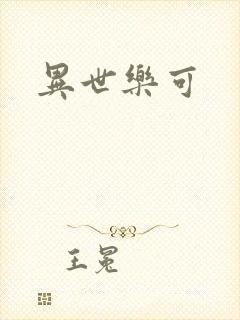 異世樂可
王冕